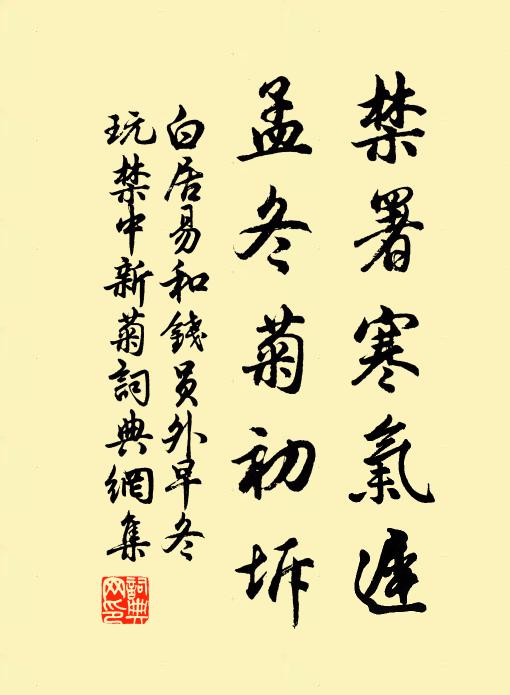 禁署寒氣遲
孟冬菊初坼
白居易和錢員外早冬
玩禁中新菊詞典網集
詞典網印